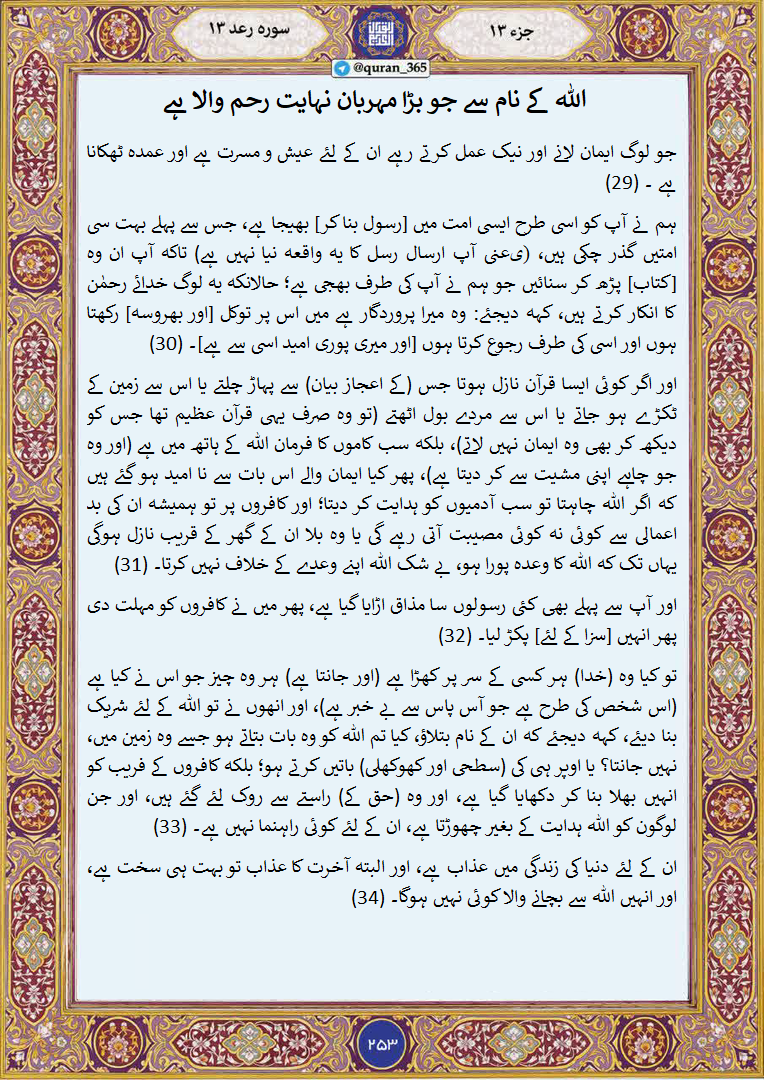 جزء ۱۳
سوره رعد ۱۳
@quran_365
الله کے نام سے جو بڑا مہربان نہایت رحم والا ہے
جو لوگ ایمان لائے اور نیک عمل کرتے رہے ان کے لئے عیش و مسرت ہے اور عمدہ ٹھکانا
ہے ۔ (29)
ہم نے آپ کو اسی طرح ایسی امت میں [رسول بنا کر] بھیجا ہے، جس سے پہلے بہت سی
امتیں گذر چکی ہیں، (یعنی آپ ارسال رسل کا یہ واقعہ نیا نہیں ہے) تاکہ آپ ان وہ
[کتاب] پڑھ کر سنائیں جو ہم نے آپ کی طرف بھجی ہے؛ حالانکہ یہ لوگ خدائے رحمٰن
کا انکار کرتے ہیں، کہہ دیجئے: وہ میرا پروردگار ہے میں اس پر توکل [اور بھروسہ] رکھتا
ہوں اور اسی کی طرف رجوع کرتا ہوں [اور میری پوری امید اسی سے ہے]۔ (30)
اور اگر کوئی ایسا قرآن نازل ہوتا جس (کے اعجاز بیان) سے پہاڑ چلتے یا اس سے زمین کے
ٹکڑے ہو جاتے یا اس سے مردے بول اٹھتے (تو وہ صرف یہی قرآن عظیم تھا جس کو
دیکھ کر بھی وہ ایمان نہیں لاتے)، بلکہ سب کاموں کا فرمان الله کے ہاتھ میں ہے (اور وہ
جو چاہے اپنی مشیت سے کر دیتا ہے)، پھر کیا ایمان والے اس بات سے نا امید ہو گئے ہیں
کہ اگر الله چاہتا تو سب آدمیوں کو ہدایت کر دیتا؛ اور کافروں پر تو ہمیشہ ان کی بد
اعمالی سے کوئی نہ کوئی مصیبت آتی رہے گی یا وہ بلا ان کے گھر کے قریب نازل ہوگی
یہاں تک کہ الله کا وعدہ پورا ہو، بے شک الله اپنے وعدے کے خلاف نہیں کرتا۔ (31)
اور آپ سے پہلے بھی کئی رسولوں سا مذاق اڑایا گیا ہے، پھر میں نے کافروں کو مہلت دی
پھر انہیں [سزا کے لئے] پکڑ لیا۔ (32)
تو کیا وہ (خدا) ہر کسی کے سر پر کھڑا ہے (اور جانتا ہے) ہر وہ چیز جو اس نے کیا ہے
(اس شخص کی طرح ہے جو آس پاس سے بے خبر ہے)، اور انھوں نے تو الله کے لئے شریک
بنا دیئے، کہہ دیجئے کہ ان کے نام بتلاؤ، کیا تم الله کو وہ بات بتاتے ہو جسے وہ زمین میں،
نہیں جانتا؟ یا اوپر ہی کی (سطحی اور کھوکھلی) باتیں کرتے ہو؛ بلکہ کافروں کے فریب کو
انہیں بھلا بنا کر دکھایا گیا ہے، اور وہ (حق کے) راستے سے روک لئے گئے ہیں، اور جن
لوگون کو الله ہدایت کے بغیر چھوڑتا ہے، ان کے لئے کوئی راہنما نہیں ہے۔ (33)
ان کے لئے دنیا کی زندگی میں عذاب ہے، اور البتہ آخرت کا عذاب تو بہت ہی سخت ہے،
اور انہیں الله سے بچانے والا کوئی نہیں ہوگا۔ (34)
۲۵۳